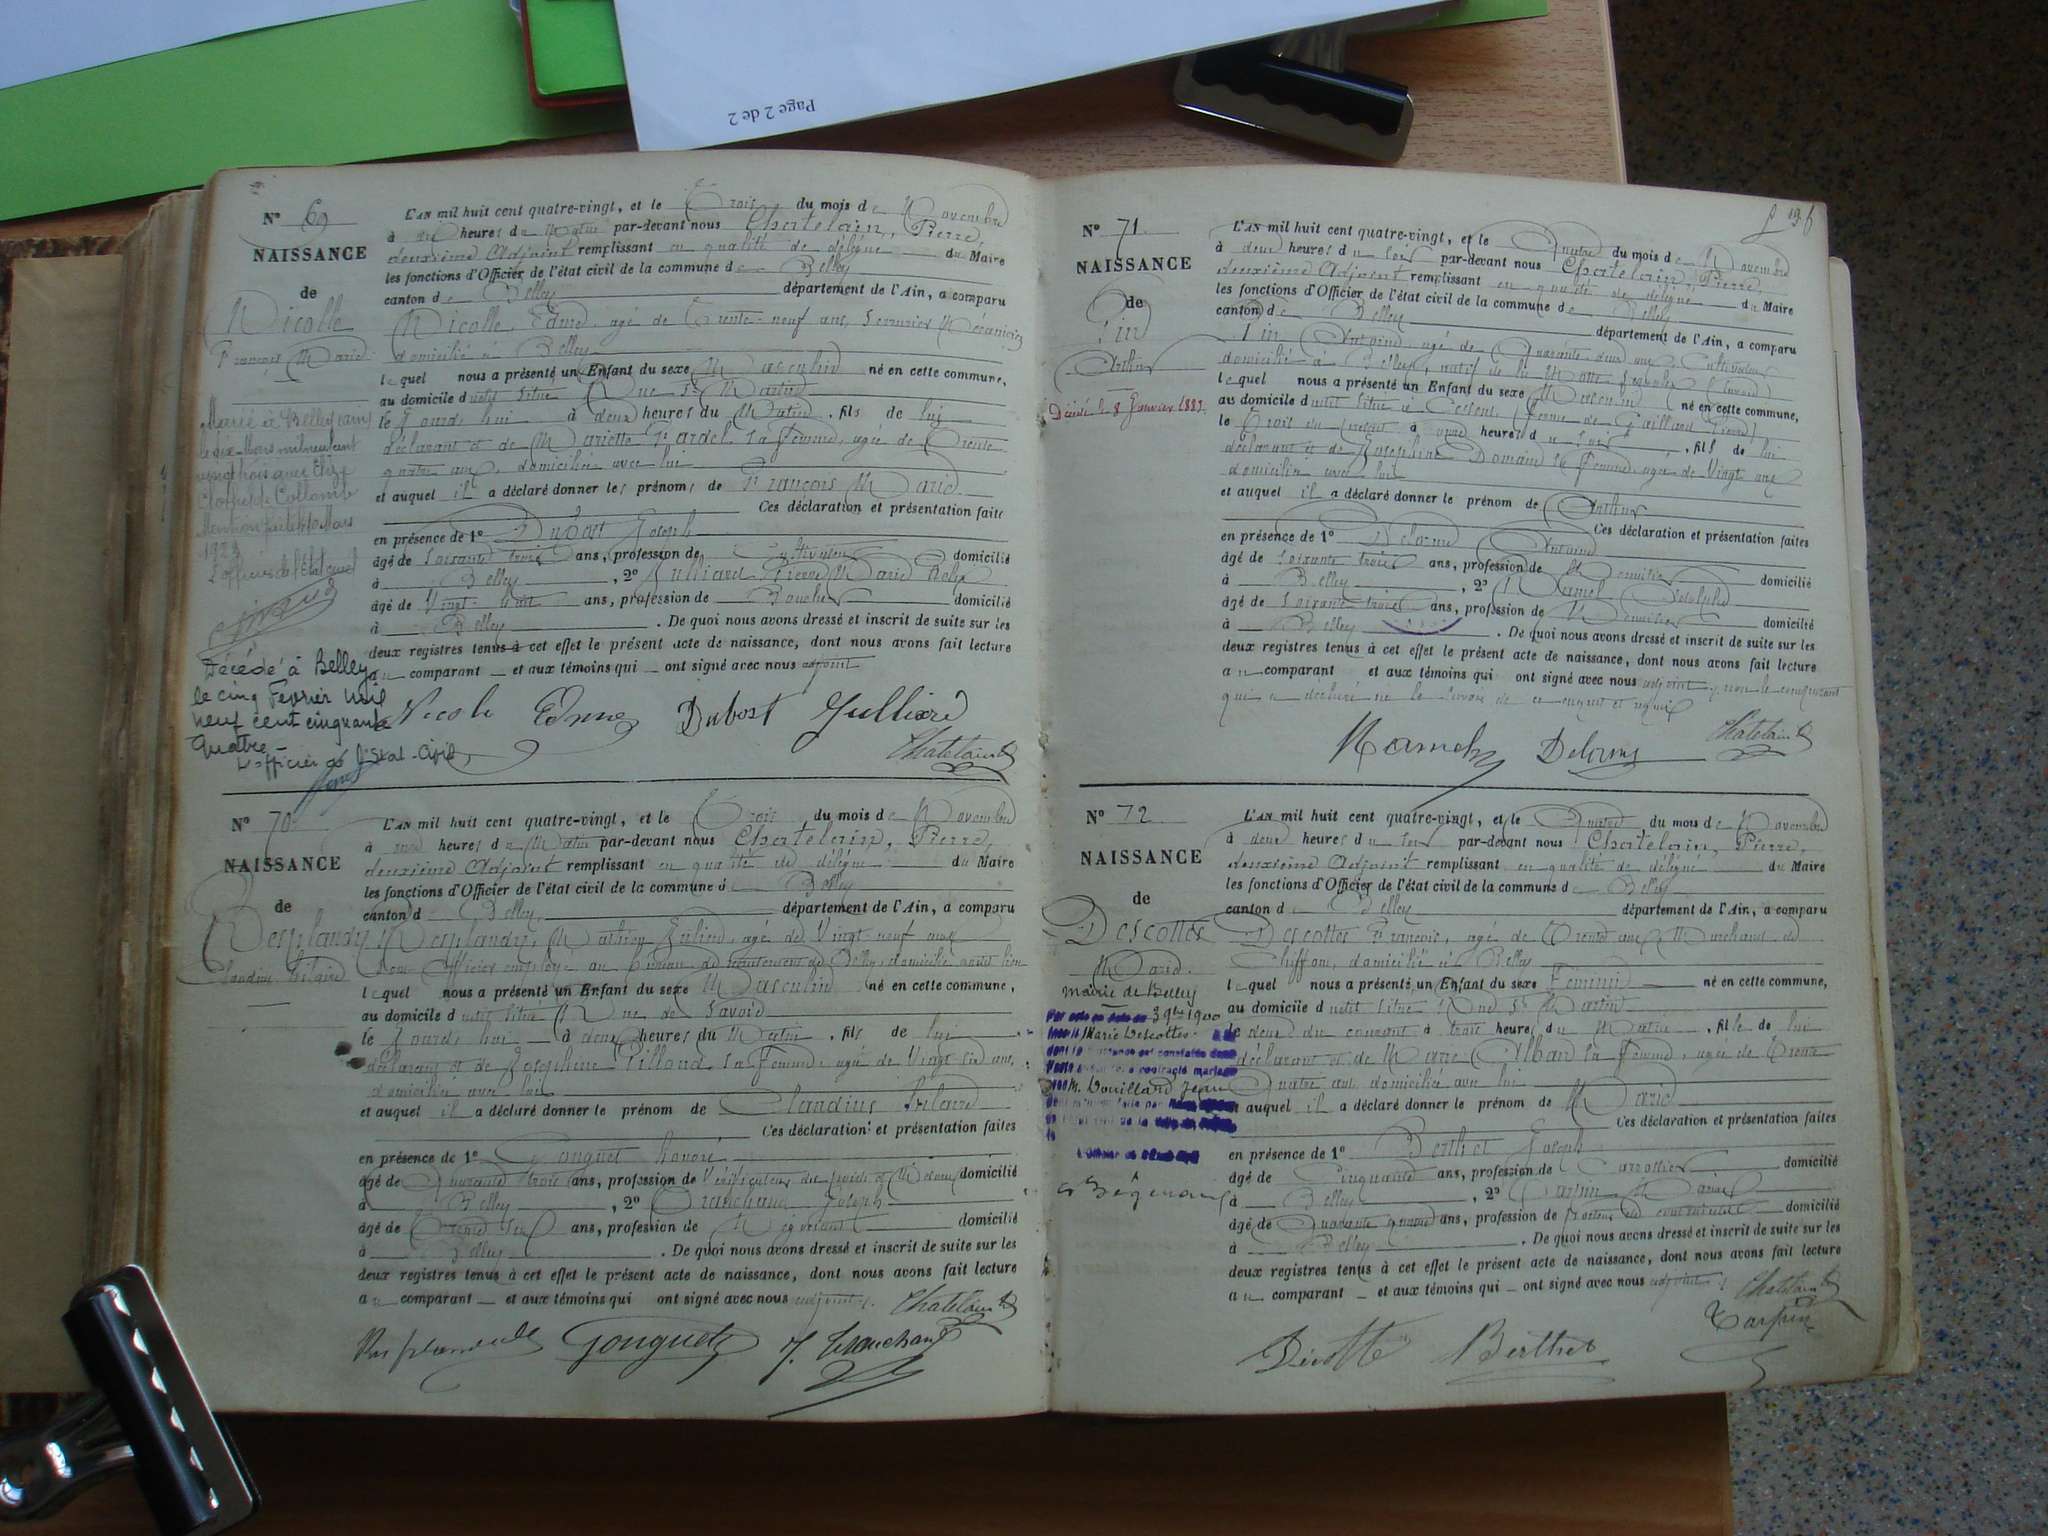 Page 2 de 2
Nº 69
NAISSANCE
de
Nicolle
François Marie
Marié à Belley (Ain)
le dix Mars mil neuf cent
vingt trois avec
Collomb
Mention faite le Mars
1923
L'officier de l'Etat civil
Décédé à Belley
le cinq Février Mil
neuf cent cinquante
quatre
L'officier de l'Etat-Civil
L'AN mil huit cent quatre-vingt, et le Trois du mois de Novembre
à heures du Matin par-devant nous Chatelain, Pierre,
deuxième Adjoint remplissant en qualité de délégué du Maire
les fonctions d'Officier de l'état civil de la commune de Belley
canton de Belley département de l'Ain, a comparu
Nicolle, Edme, agé de Trente-neuf ans, Serrurier Mécanicien
domicilié à Belley
lequel nous a présenté un Enfant du sexe Masculin né en cette commune,
au domicile Rue St Martin
le jourd'hui à deux heures du Matin, fils de lui
déclarant et de Mariette sa femme, agée de Trente
quatre ans, domiciliée avec lui
et auquel il a déclaré donner les prénoms de François Marie
Ces déclaration et présentation faites
en présence de 1º Dubost Joseph
âgé de Soixante trois ans, profession de Cultivateur domicilié
à Belley, 2º Julliard Pierre Marie
âgé de Vingt huit ans, profession de Boucher domicilié
à Belley. De quoi nous avons dressé et inscrit de suite sur les
deux registres tenus à cet effet le présent acte de naissance, dont nous avons fait lecture
au comparant et aux témoins qui ont signé avec nous adjoint
Nicole Edme Dubost Julliard
Chatelain
Nº 70
NAISSANCE
de
Resplandy
Claudius hilaire
L'AN mil huit cent quatre-vingt, et le Trois du mois de Novembre
à heures du Matin par-devant nous Chatelain, Pierre,
deuxième Adjoint remplissant en qualité de délégué du Maire
les fonctions d'Officier de l'état civil de la commune de Belley
canton de Belley département de l'Ain, a comparu
Resplandy, Mathieu Julien, agé de Vingt neuf ans
Sous Officier employé au bureau de recrutement de Belley, domicilié
lequel nous a présenté un Enfant du sexe Masculin né en cette commune,
au domicile Rue de Savoie
le jourd'hui à deux heures du Matin, fils de lui
déclarant et de Joséphine Pilloud sa femme, agée de Vingt six ans,
domiciliée avec lui
et auquel il a déclaré donner le prénom de Claudius hilaire
Ces déclaration et présentation faites
en présence de 1º Gouguet honoré
âgé de Quarante trois ans, profession de Vérificateur des poids et Mesures domicilié
à Belley, 2º Tranchand Joseph
âgé de Trente six ans, profession de Négociant domicilié
à Belley. De quoi nous avons dressé et inscrit de suite sur les
deux registres tenus à cet effet le présent acte de naissance, dont nous avons fait lecture
au comparant et aux témoins qui ont signé avec nous adjoint. Chatelain
Resplandy Gouguet J. Tranchand
Nº 71
NAISSANCE
de
Pin
Arthur
Décédé le 8 Janvier 1881
L'AN mil huit cent quatre-vingt, et le Quatre du mois de Novembre
à deux heures du soir par-devant nous Chatelain, Pierre,
deuxième Adjoint remplissant en qualité de délégué du Maire
les fonctions d'Officier de l'état civil de la commune de Belley
canton de Belley département de l'Ain, a comparu
Pin agé de Quarante deux ans, Cultivateur
domicilié à Belley, natif de la Motte
lequel nous a présenté un Enfant du sexe Masculin né en cette commune,
au domicile ferme de Gaillard
le Trois du courant à onze heures du soir, fils de lui
déclarant et de Joséphine Domain sa femme agée de Vingt ans
domiciliée avec lui
et auquel il a déclaré donner le prénom de Arthur
Ces déclaration et présentation faites
en présence de 1º Delorme Antoine
âgé de Soixante trois ans, profession de Menuisier domicilié
à Belley, 2º Ramel Adolphe
âgé de Soixante trois ans, profession de Menuisier domicilié
à Belley. De quoi nous avons dressé et inscrit de suite sur les
deux registres tenus à cet effet le présent acte de naissance, dont nous avons fait lecture
au comparant et aux témoins qui ont signé avec nous adjoint, non le comparant
qui a déclaré ne le savoir de ce enquis et requis
Ramel Delorme
Chatelain
Nº 72
NAISSANCE
de
Descottes
Marie
Mairie de Belley
3 9bre 1900
Marie Descottes
contracté mariage
M. Vouillard Jean
L'AN mil huit cent quatre-vingt, et le Quatre du mois de Novembre
à deux heures du soir par-devant nous Chatelain, Pierre,
deuxième Adjoint remplissant en qualité de délégué du Maire
les fonctions d'Officier de l'état civil de la commune de Belley
canton de Belley département de l'Ain, a comparu
Descottes François, agé de Trente ans, Marchand de
Chiffons, domicilié à Belley
lequel nous a présenté un Enfant du sexe Féminin né en cette commune,
au domicile Rue St Martin
le deux du courant à trois heures du Matin, fille de lui
déclarant et de Marie Alban sa femme, agée de Trente
Quatre ans, domiciliée avec lui
et auquel il a déclaré donner le prénom de Marie
Ces déclaration et présentation faites
en présence de 1º Berthet Joseph
âgé de Cinquante ans, profession de Carrossier domicilié
à Belley, 2º Tarpin
âgé de Quarante quatre ans, profession de domicilié
à Belley. De quoi nous avons dressé et inscrit de suite sur les
deux registres tenus à cet effet le présent acte de naissance, dont nous avons fait lecture
au comparant et aux témoins qui ont signé avec nous adjoint. Chatelain
Tarpin
Descotte Berthet